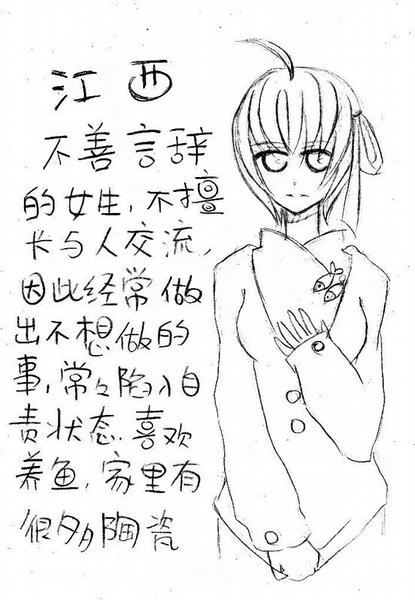 江西
不善言辞
的女生,不擅
长与人交流,
因此经常做
出不想做的
事,常々陷入自
责状态.喜欢
养鱼,家里有
很多陶瓷